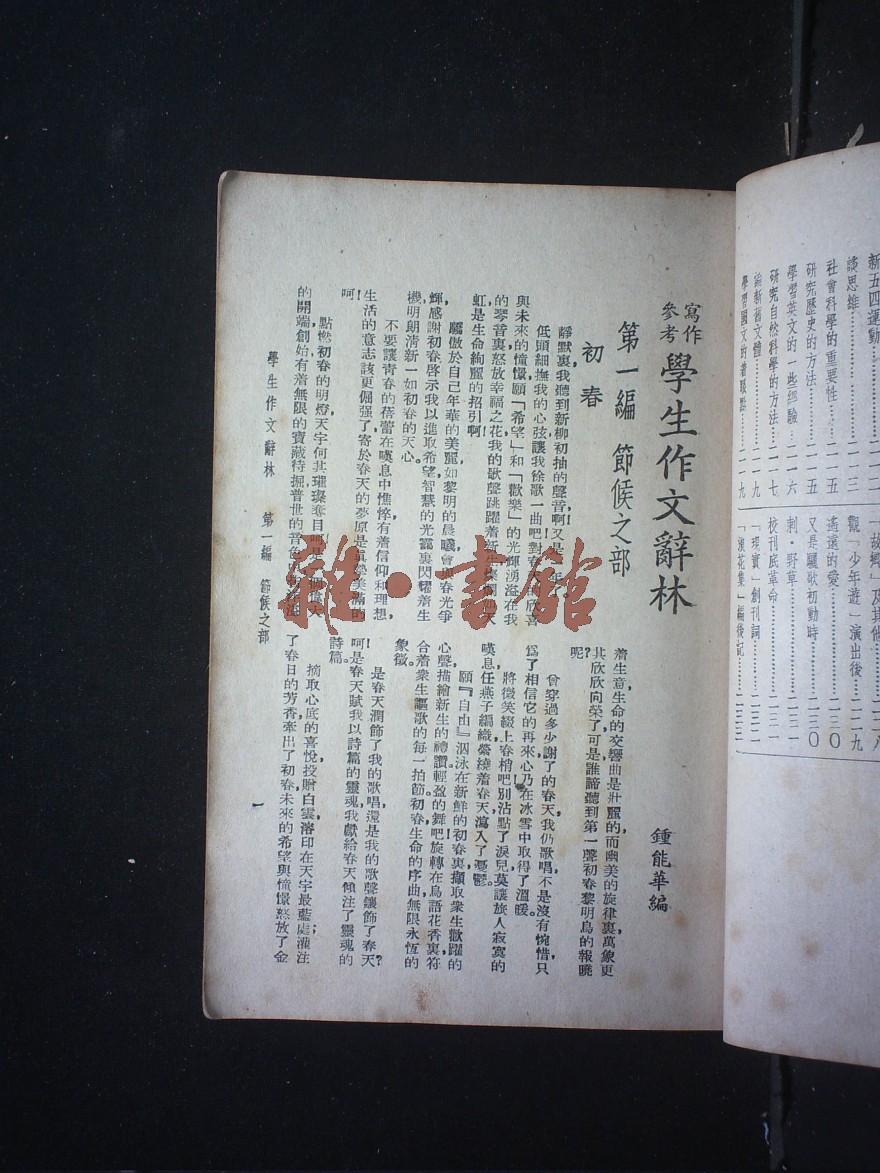 新五四運動……二一二
談思維……二一三
社會科學的重要性……二一五
研究歷史的方法……二一五
學習英文的一些經驗……二一六
研究自然科學的方法……二一七
論新舊文體……二一九
學習國文的着眼點……二一九
「故鄉」及其他……二二八
觀「少年遊」演出後……二二九
遙遠的愛……二三〇
又是驪歌初動時……二三〇
刺·野草……二三一
校刊底革命……二三一
「現實」創刊詞……二三二
「浪花集」編後記……二三三
寫作參考 學生作文辭林
鍾能華編
第一編 節候之部
初春
靜默裏我聽到新柳初抽的聲音啊!又是一年了
低頭細撫我的心弦讓我徐歌一曲吧對春天的欣喜
與未來的憧憬願「希望」和「歡樂」的光輝湧溢在我
的琴音裏怒放幸福之花我的歌聲跳躍着
虹是生命絢麗的招引啊!
驕傲於自己年華的美麗如黎明的晨曦會與春光爭
輝感謝初春啓示我以進取希望智慧的光霞裏閃耀着生
機明朗清新一如初春的天心。
不要讓青春的蓓蕾在嘆息中憔悴有着信仰和理想,
生活的意志該更倔强了寄於春天的夢原是眞榮美滿的
呵!
點燃初春的明燈天宇何其璀璨奪目啊是一個偉大
的開端創始有着無限的寶藏待掘普世的音
着生意生命的交響曲是壯麗的而幽美的旋律裏萬象更
其欣欣向榮了可是誰諦聽到第一聲初春黎明鳥的報曉
呢?
曾穿過多少謝了的春天我仍歌唱不是沒有惋惜只
爲了相信它的再來心乃在冰雪中取得了溫暖。
將微笑綴上春梢吧別沾點了淚兒莫讓旅人寂寞的
嘆息任燕子編織縈繞着春天瀉入了憂鬱。
願『自由』泅泳在新鮮的初春裏擷取衆生歡躍的
心聲描繪新生的禮讚輕盈的舞吧旋轉在鳥語花香裏符
合着衆生謳歌的每一拍節初春生命的序曲無限永恆的
象徵。
是春天潤飾了我的歌唱還是我的歌聲鑲飾了春天?
呵!是春天賦我以詩篇的靈魂我獻給春天傾注了靈魂的
詩篇。
摘取心底的喜悅投贈白雲溶印在天宇最藍處;灌注
了春日的芳香牽出了初春未來的希望與憧憬怒放了金
學生作文辭林 第一編 節候之部
一
雜·書館